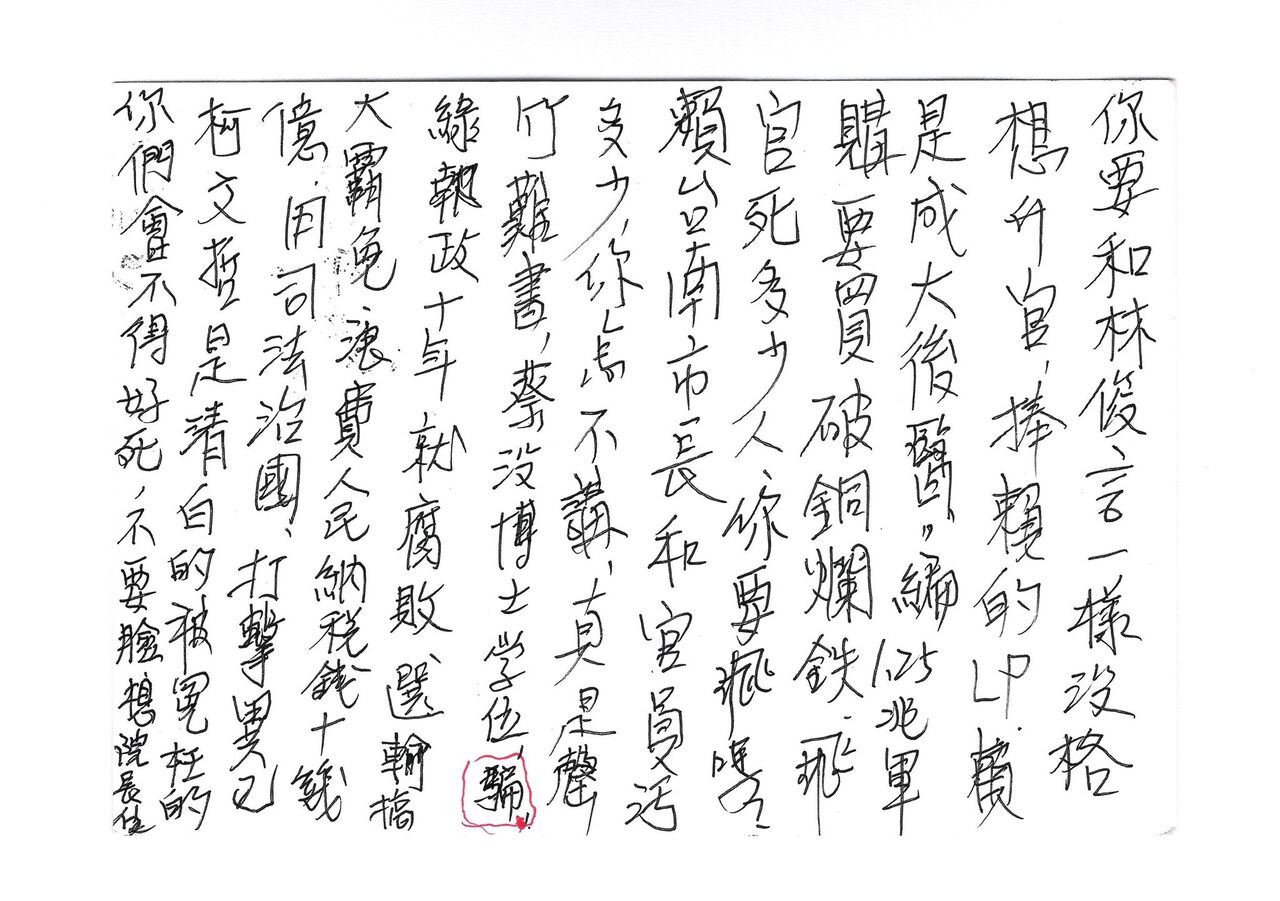 你要和林俊言一樣没格
想升官，捧賴的LP.賴
是成大後醫，编1.25兆軍
購要買破銅爛鉄.飛
官死多少人、你要飛嗎
賴台南市長和官員污
多少，你為不講，真是罄
竹難書，蔡没博士學位，騙！
綠執政十年就腐敗選輸搞
大罷免、浪費人民納税錢十幾
億.用司法治國、打擊異己
柯文哲是清白的被冤枉的
你們會不得好死、不要臉想院長位